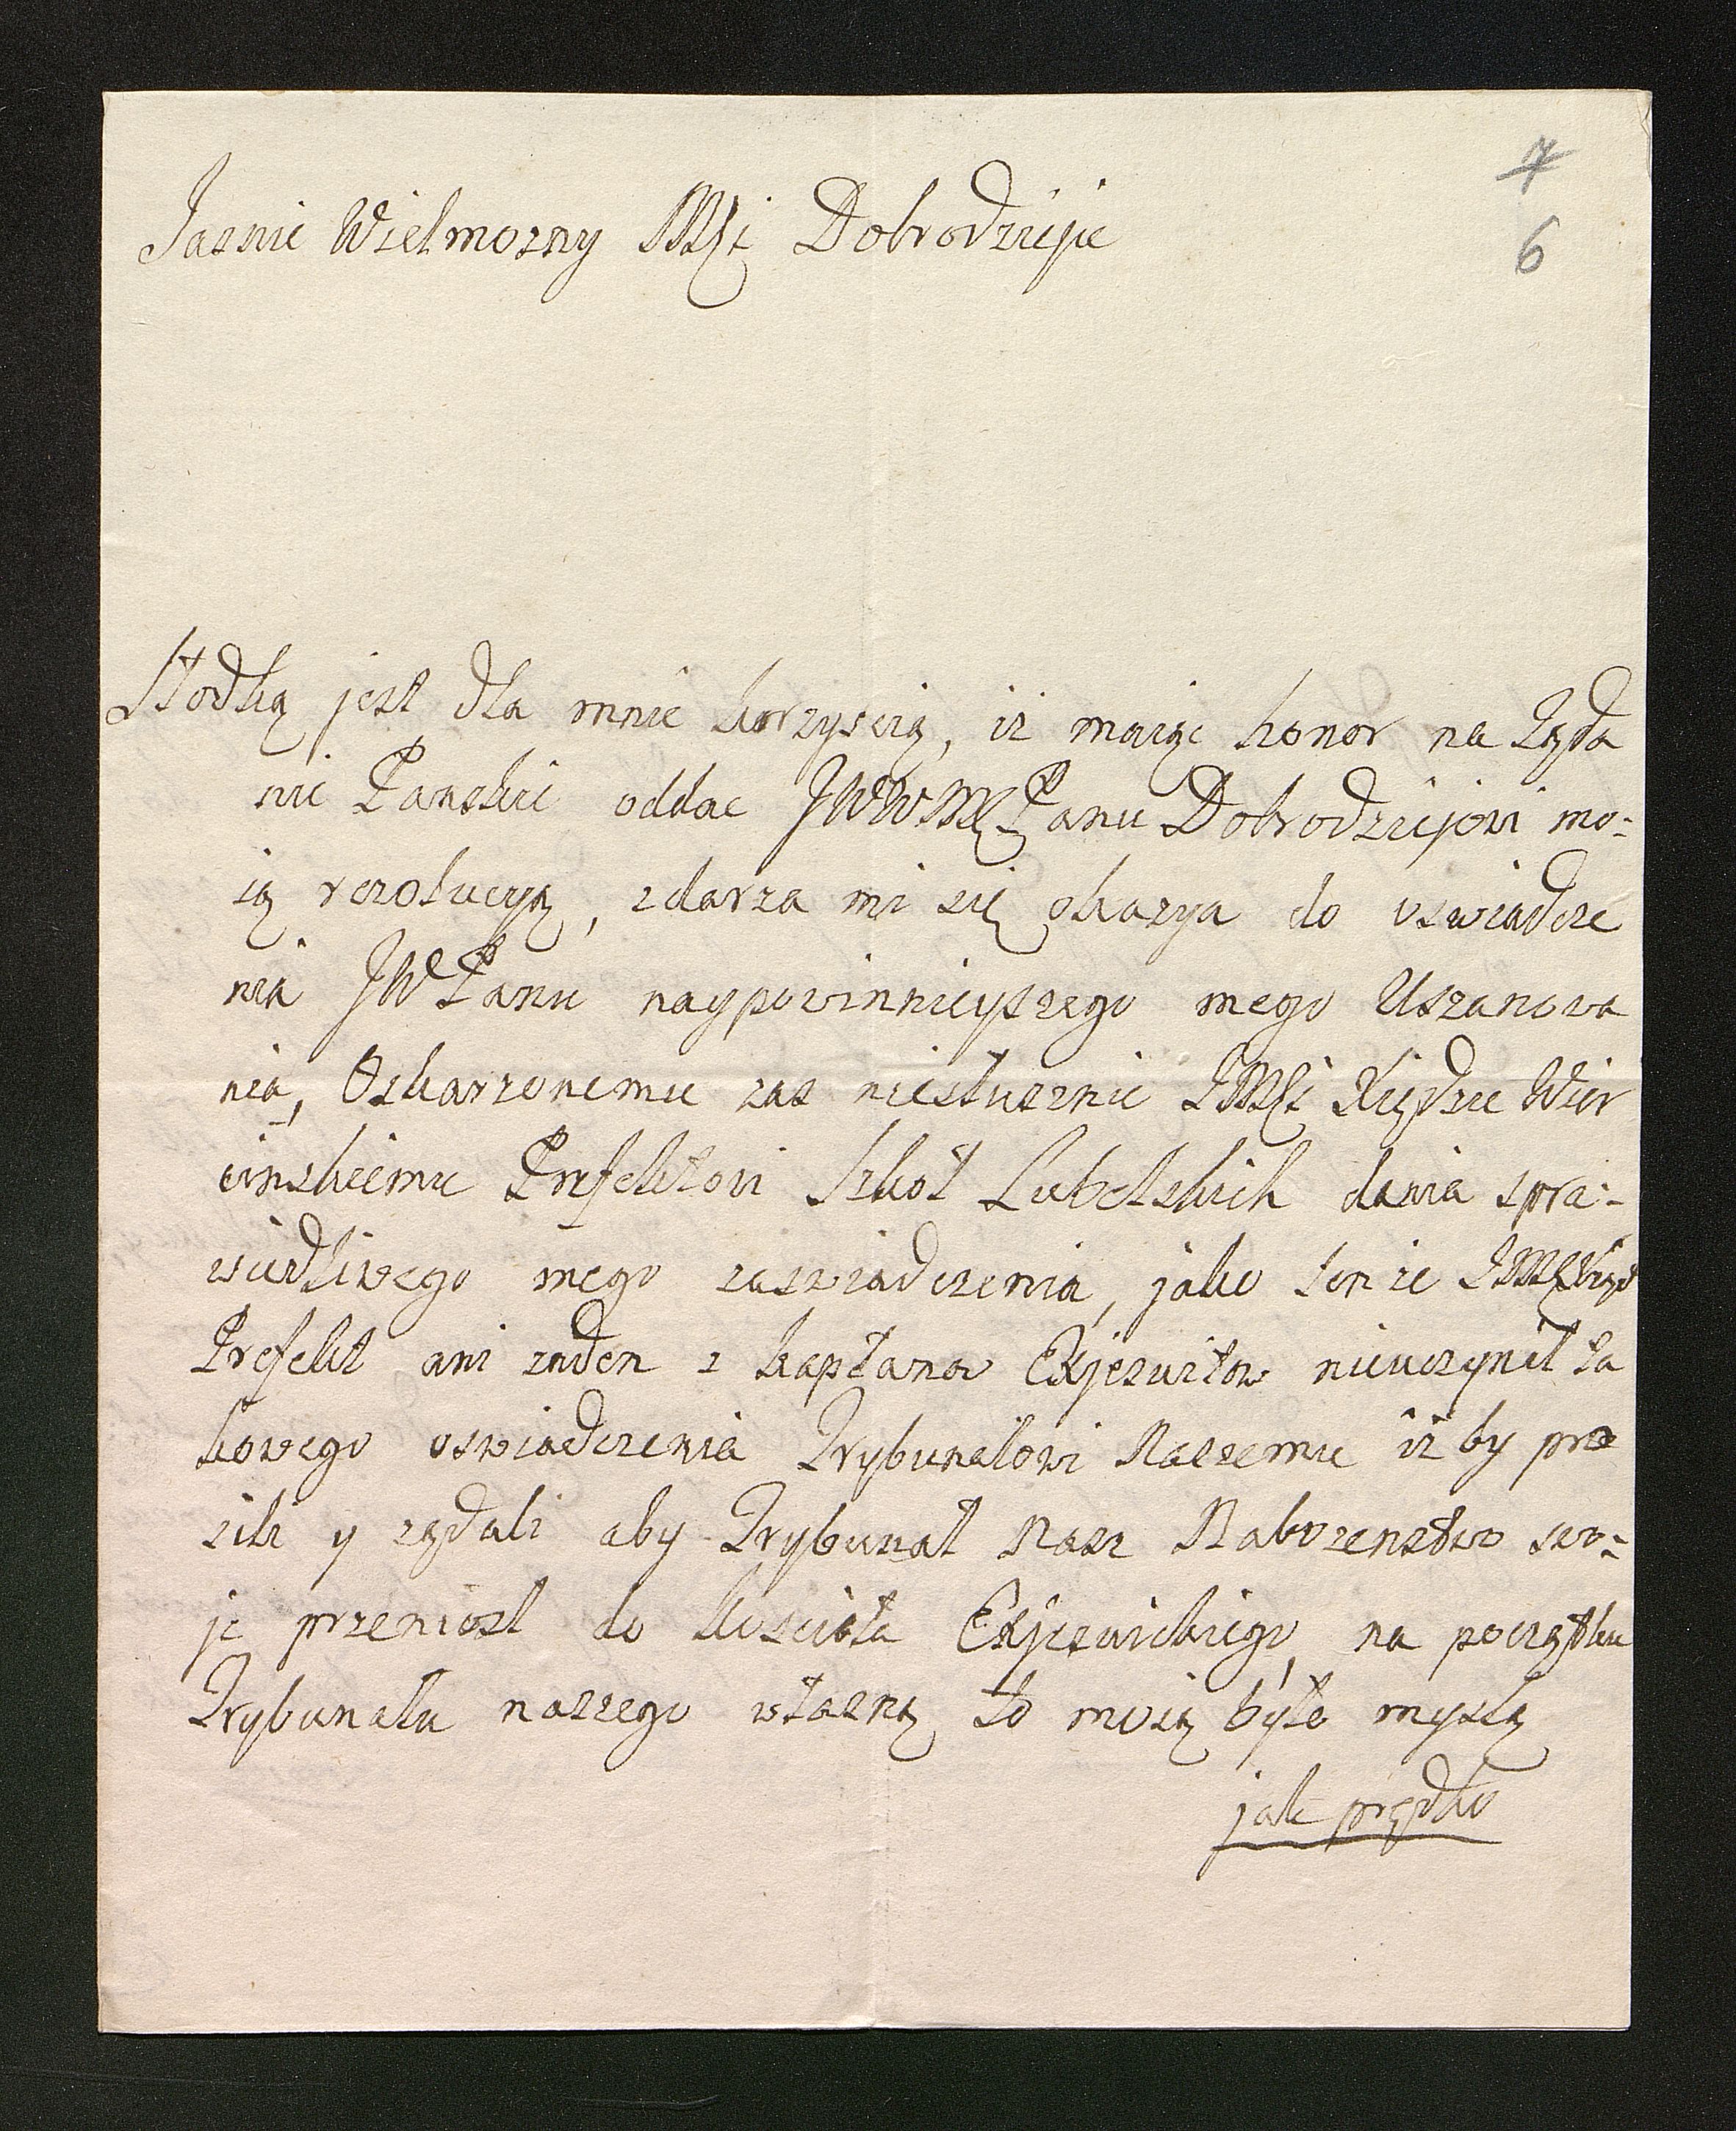 7
6
Jasnie Wielmozny Mści Dobrodzieju
Słodką jest dla mnie korzyscią, iz maiąc honor na Ząda
nie Panskie oddac JWWMć Panu Dobrodziejowi mo-
ią rezolucyą, zdarza mi się okazya do oswiadcze
nia JWPanu naypowinnieyszego mego Uszanowa
nia, Oskarzonemu zas niesłusznie JMści Xiędzu Wier
cinskiemu Prefektowi Szkoł Lubelskich dania spra-
wiedliwego mego zaswiadczenia, jako tenze JMć Xiądz
Prefekt ani zaden z kapłanow ExJezuitow nieuczynił ta
kowego oswiadczenia Trybunałowi Naszemu iz by pro
sili y ządali aby Trybunał Nasz Nabozenstwo swo-
je przeniosł do Koscioła ExJezuickiego, na początku
Trybunału naszego własną to moią było myslą
jak prędko